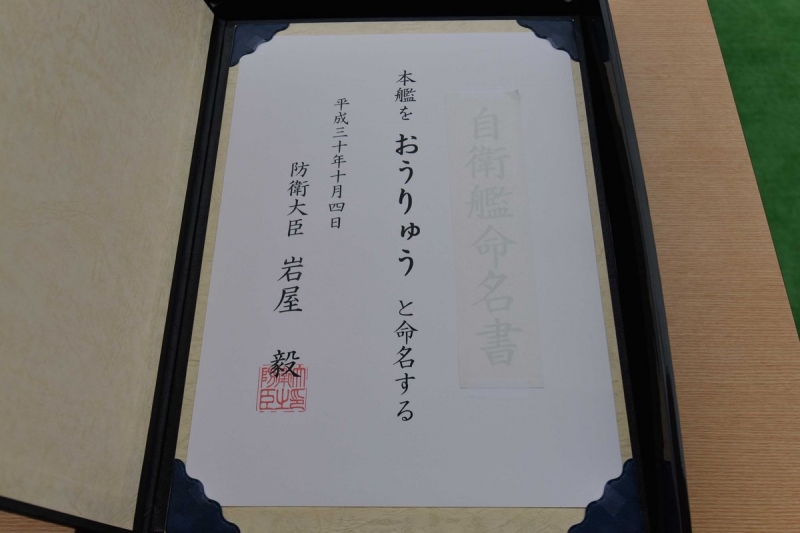 自衛艦命名書
本艦を おうりゅう と命名する
平成三十年十月四日
防衛大臣 岩屋 毅
防衛大臣之印